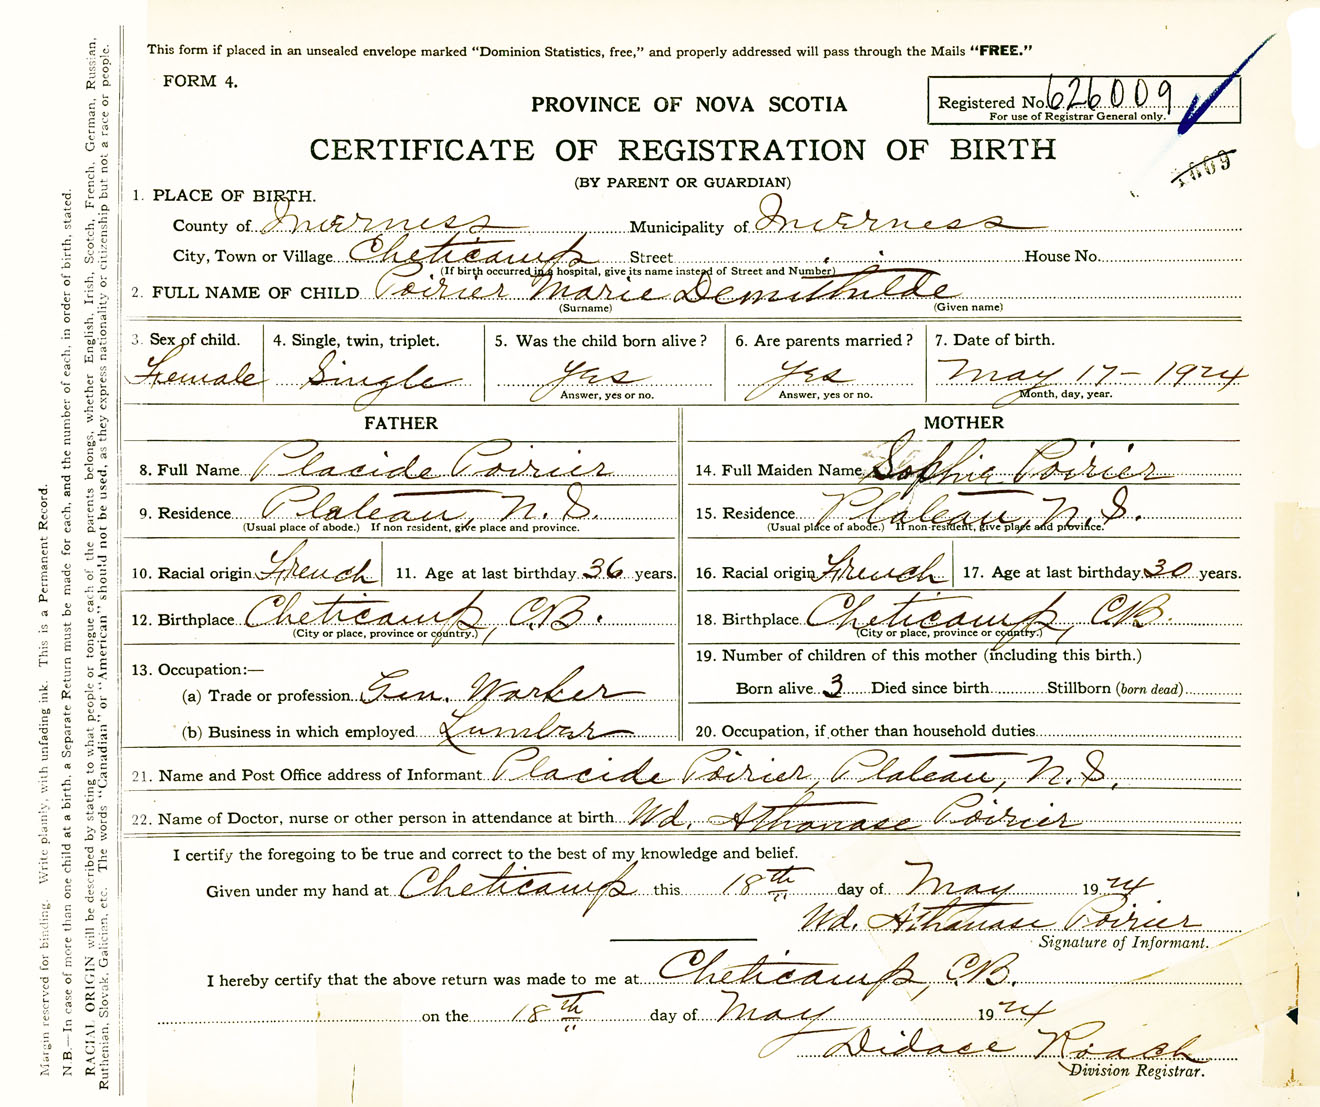 This form if placed in an unsealed envelope marked “Dominion Statistics, free,” and properly addressed will pass through the Mails “FREE.”
FORM 4.
PROVINCE OF NOVA SCOTIA
Registered No. 626009
For use of Registrar General only.
CERTIFICATE OF REGISTRATION OF BIRTH
1609
(BY PARENT OR GUARDIAN)
1. PLACE OF BIRTH.
County of Inverness Municipality of Inverness
City, Town or Village Cheticamp Street House No.
(If birth occurred in a hospital, give its name instead of Street and Number)
2. FULL NAME OF CHILD Poirier Marie Demithilde
(Surname) (Given name)
3. Sex of child. 4. Single, twin, triplet. 5. Was the child born alive? 6. Are parents married? 7. Date of birth.
Female Single Yes Yes May 17 - 1924
Answer, yes or no. Answer, yes or no. Month, day, year.
FATHER MOTHER
8. Full Name Placide Poirier 14. Full Maiden Name Sophie Poirier
9. Residence Plateau, N.S. 15. Residence Plateau, N.S.
(Usual place of abode.) If non resident, give place and province. (Usual place of abode.) If non-resident, give place and province.
10. Racial origin French 11. Age at last birthday 36 years. 16. Racial origin French 17. Age at last birthday 30 years.
12. Birthplace Cheticamp, C.B. 18. Birthplace Cheticamp, C.B.
(City or place, province or country.) (City or place, province or country.)
13. Occupation:— 19. Number of children of this mother (including this birth.)
(a) Trade or profession Gen. Worker Born alive 3 Died since birth Stillborn (born dead)
(b) Business in which employed Lumber 20. Occupation, if other than household duties
21. Name and Post Office address of Informant Placide Poirier, Plateau, N.S.
22. Name of Doctor, nurse or other person in attendance at birth Wd. Athanase Poirier
I certify the foregoing to be true and correct to the best of my knowledge and belief.
Given under my hand at Cheticamp this 18th day of May 1924
Wd. Athanase Poirier
Signature of Informant.
I hereby certify that the above return was made to me at Cheticamp, C.B.
on the 18th day of May 1924
Didace Roach
Division Registrar.
Margin reserved for binding. Write plainly, with unfading ink. This is a Permanent Record.
N.B.—In case of more than one child at a birth, a Separate Return must be made for each, and the number of each, in order of birth, stated.
RACIAL ORIGIN will be described by stating to what people or tongue each of the parents belongs, whether English, Irish, Scotch, French, German, Russian,
Ruthenian, Slovak, Galician, etc. The words “Canadian” or “American” should not be used, as they express nationality or citizenship but not a race or people.